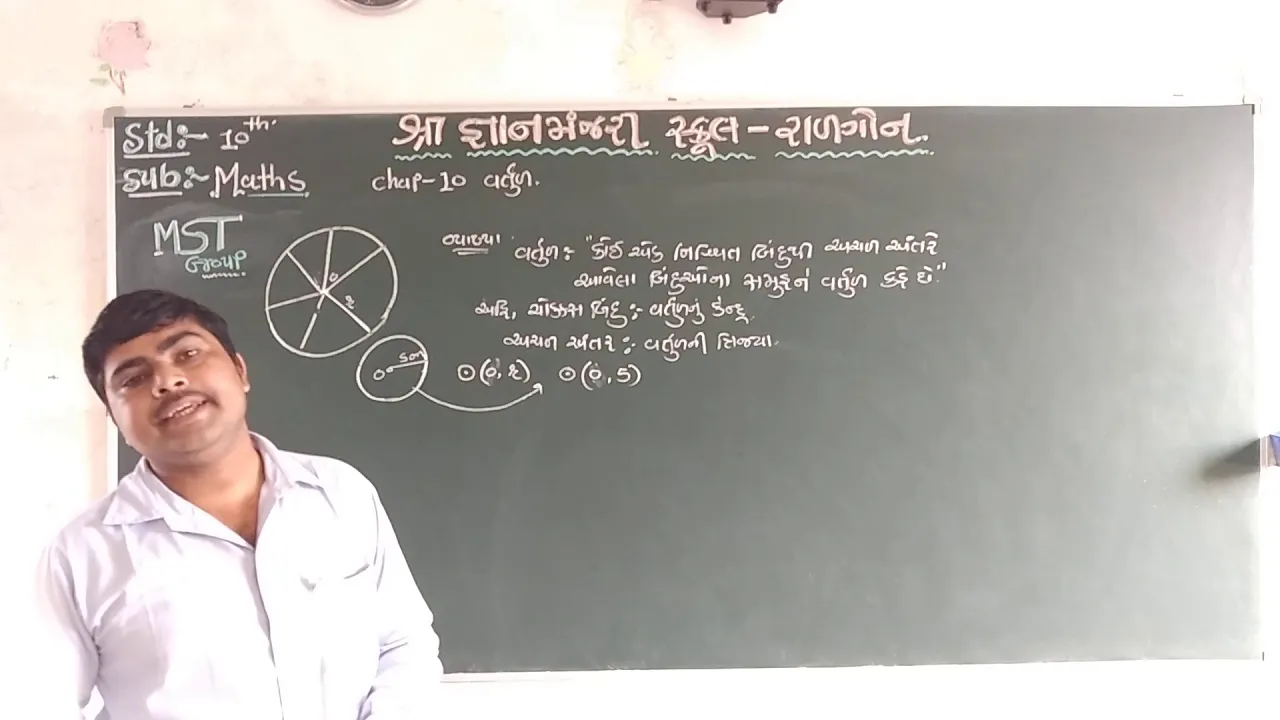 Std:- 10th.
શ્રી જ્ઞાનમંજરી સ્કૂલ - રાળગોન.
Sub:- Maths
chap-10 વર્તુળ.
MST
Group
વ્યાખ્યા
વર્તુળ:- "કોઈ એક નિશ્ચિત બિંદુથી અચળ અંતરે
આવેલા બિંદુઓના સમુહને વર્તુળ કહે છે."
અહિ, ચોક્કસ બિંદુ :- વર્તુળનું કેન્દ્ર.
અચળ અંતર :- વર્તુળની ત્રિજ્યા.
⊙(o, r) ⊙(o, 5)
o
r
o 5cm